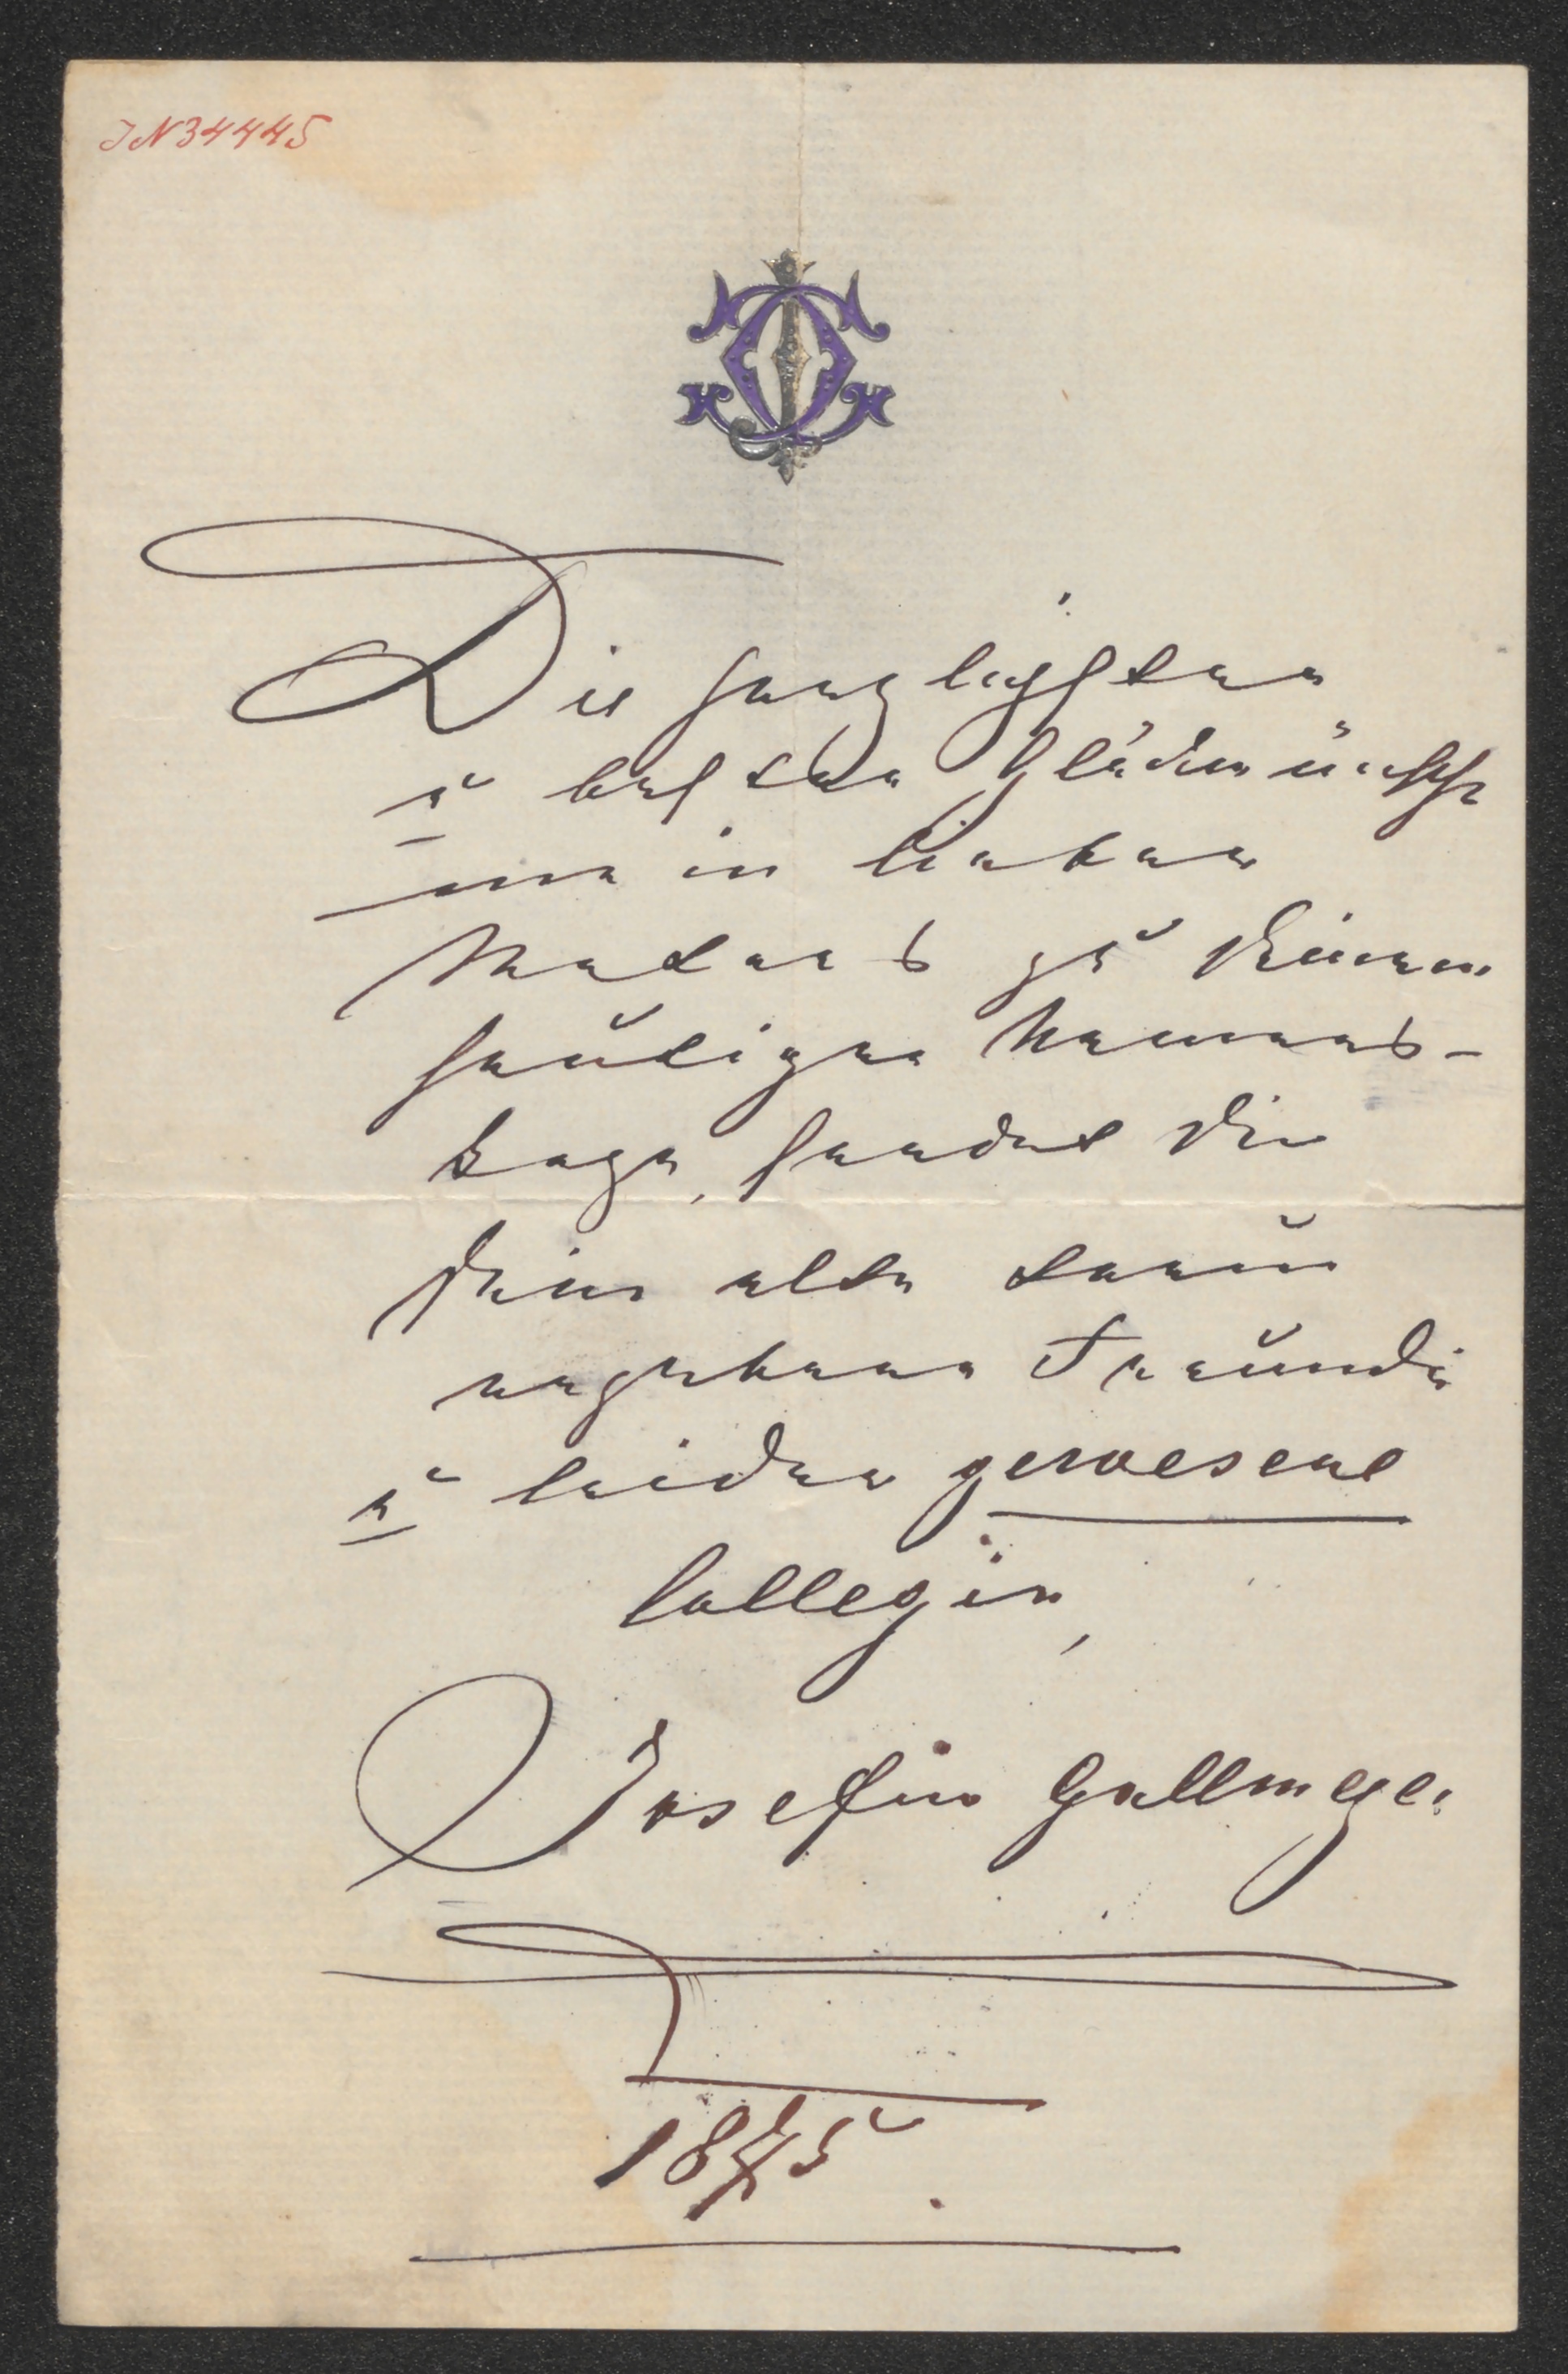 IN 34445
Die herzlichsten
u besten Glückwünsche
mein lieber
zu Deinem
heutigen Namens-
tage, sendet Dir
Deine alte treu
ergebene Freundin
u leider gewesene
Collegin,
Josefine Gallmeyer
1875.